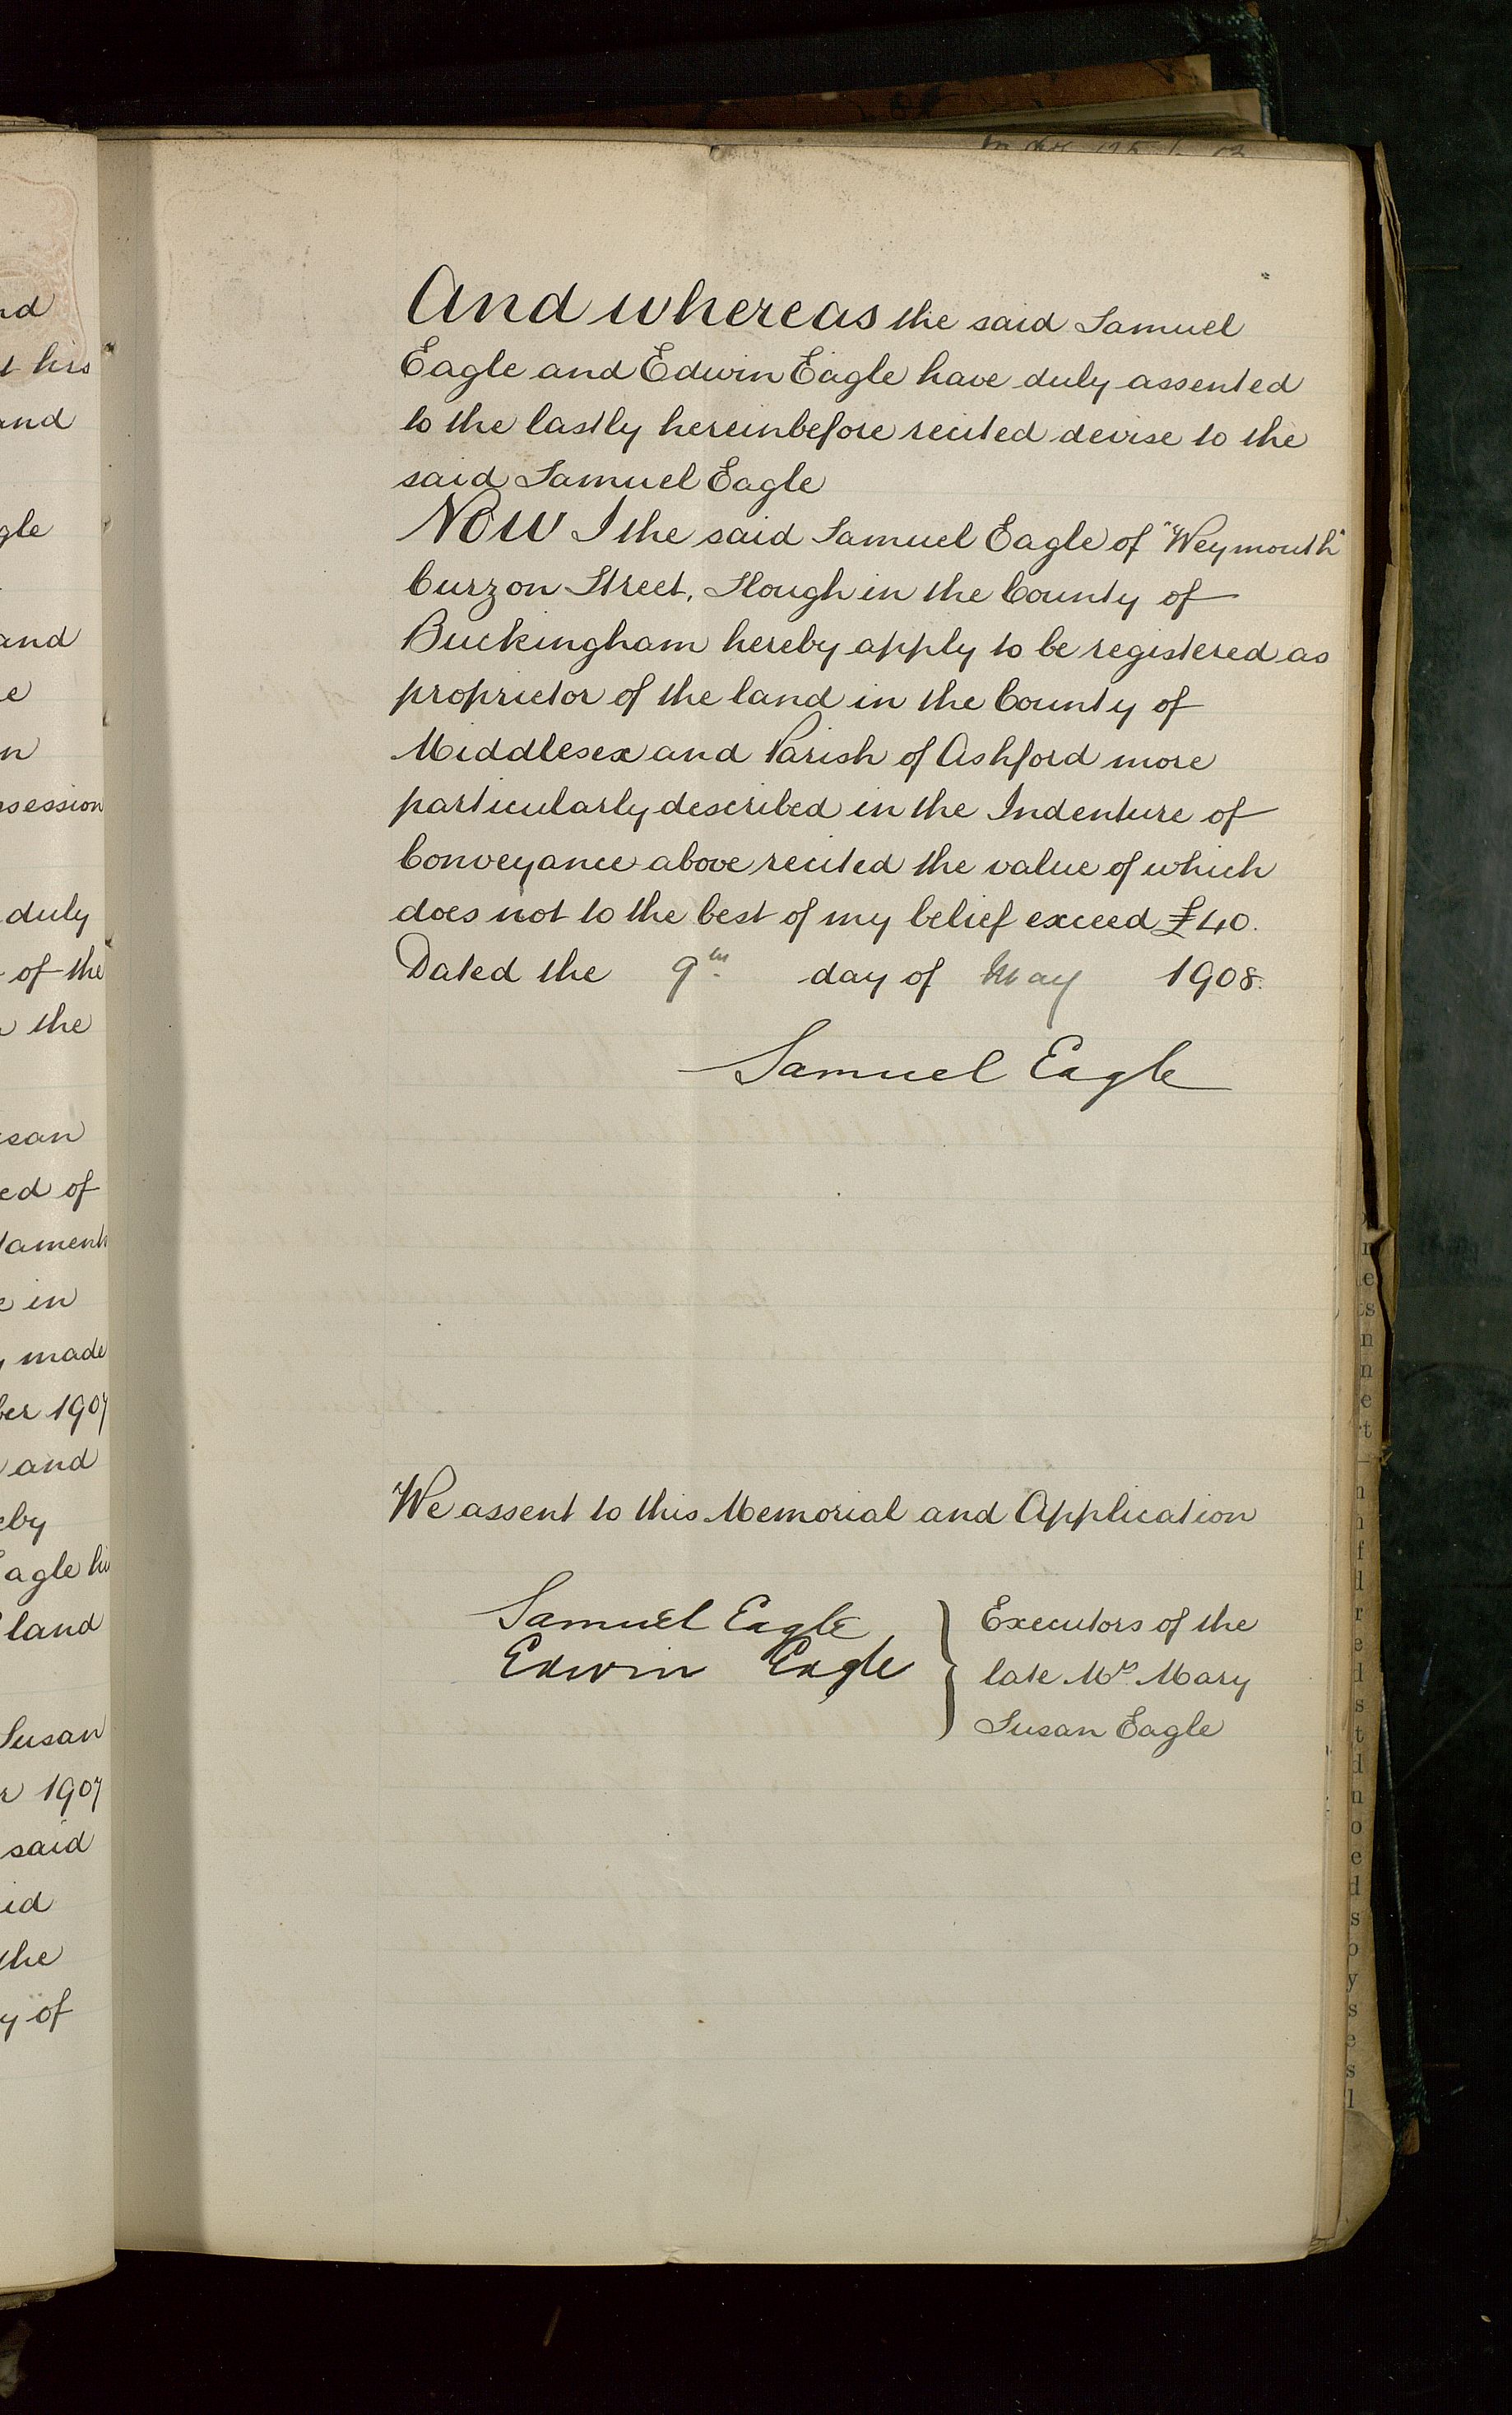 And whereas the said Samuel
Eagle and Edwin Eagle have duly assented
to the lastly hereinbefore recited devise to the
said Samuel Eagle
Now I the said Samuel Eagle of "Weymouth"
Curzon Street, Slough in the County of
Buckingham hereby apply to be registered as
proprietor of the land in the County of
Middlesex and Parish of Ashford more
particularly described in the Indenture of
Conveyance above recited the value of which
does not to the best of my belief exceed £40.
Dated the 9th day of May 1908.
Samuel Eagle
We assent to this Memorial and Application
Samuel Eagle
Edwin Eagle
Executors of the
late Mrs Mary
Susan Eagle
his
and
gle
and
session
duly
of the
the
san
ed of
tament
in
made
ber 1907
and
eby
Eagle his
land
Susan
r 1907
said
id
the
y of